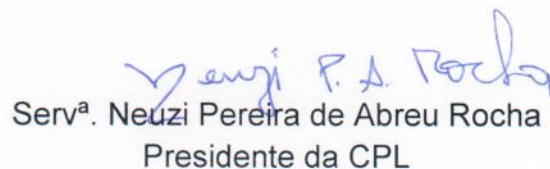 Neuzi P. A. Rocha
Servª. Neuzi Pereira de Abreu Rocha
Presidente da CPL